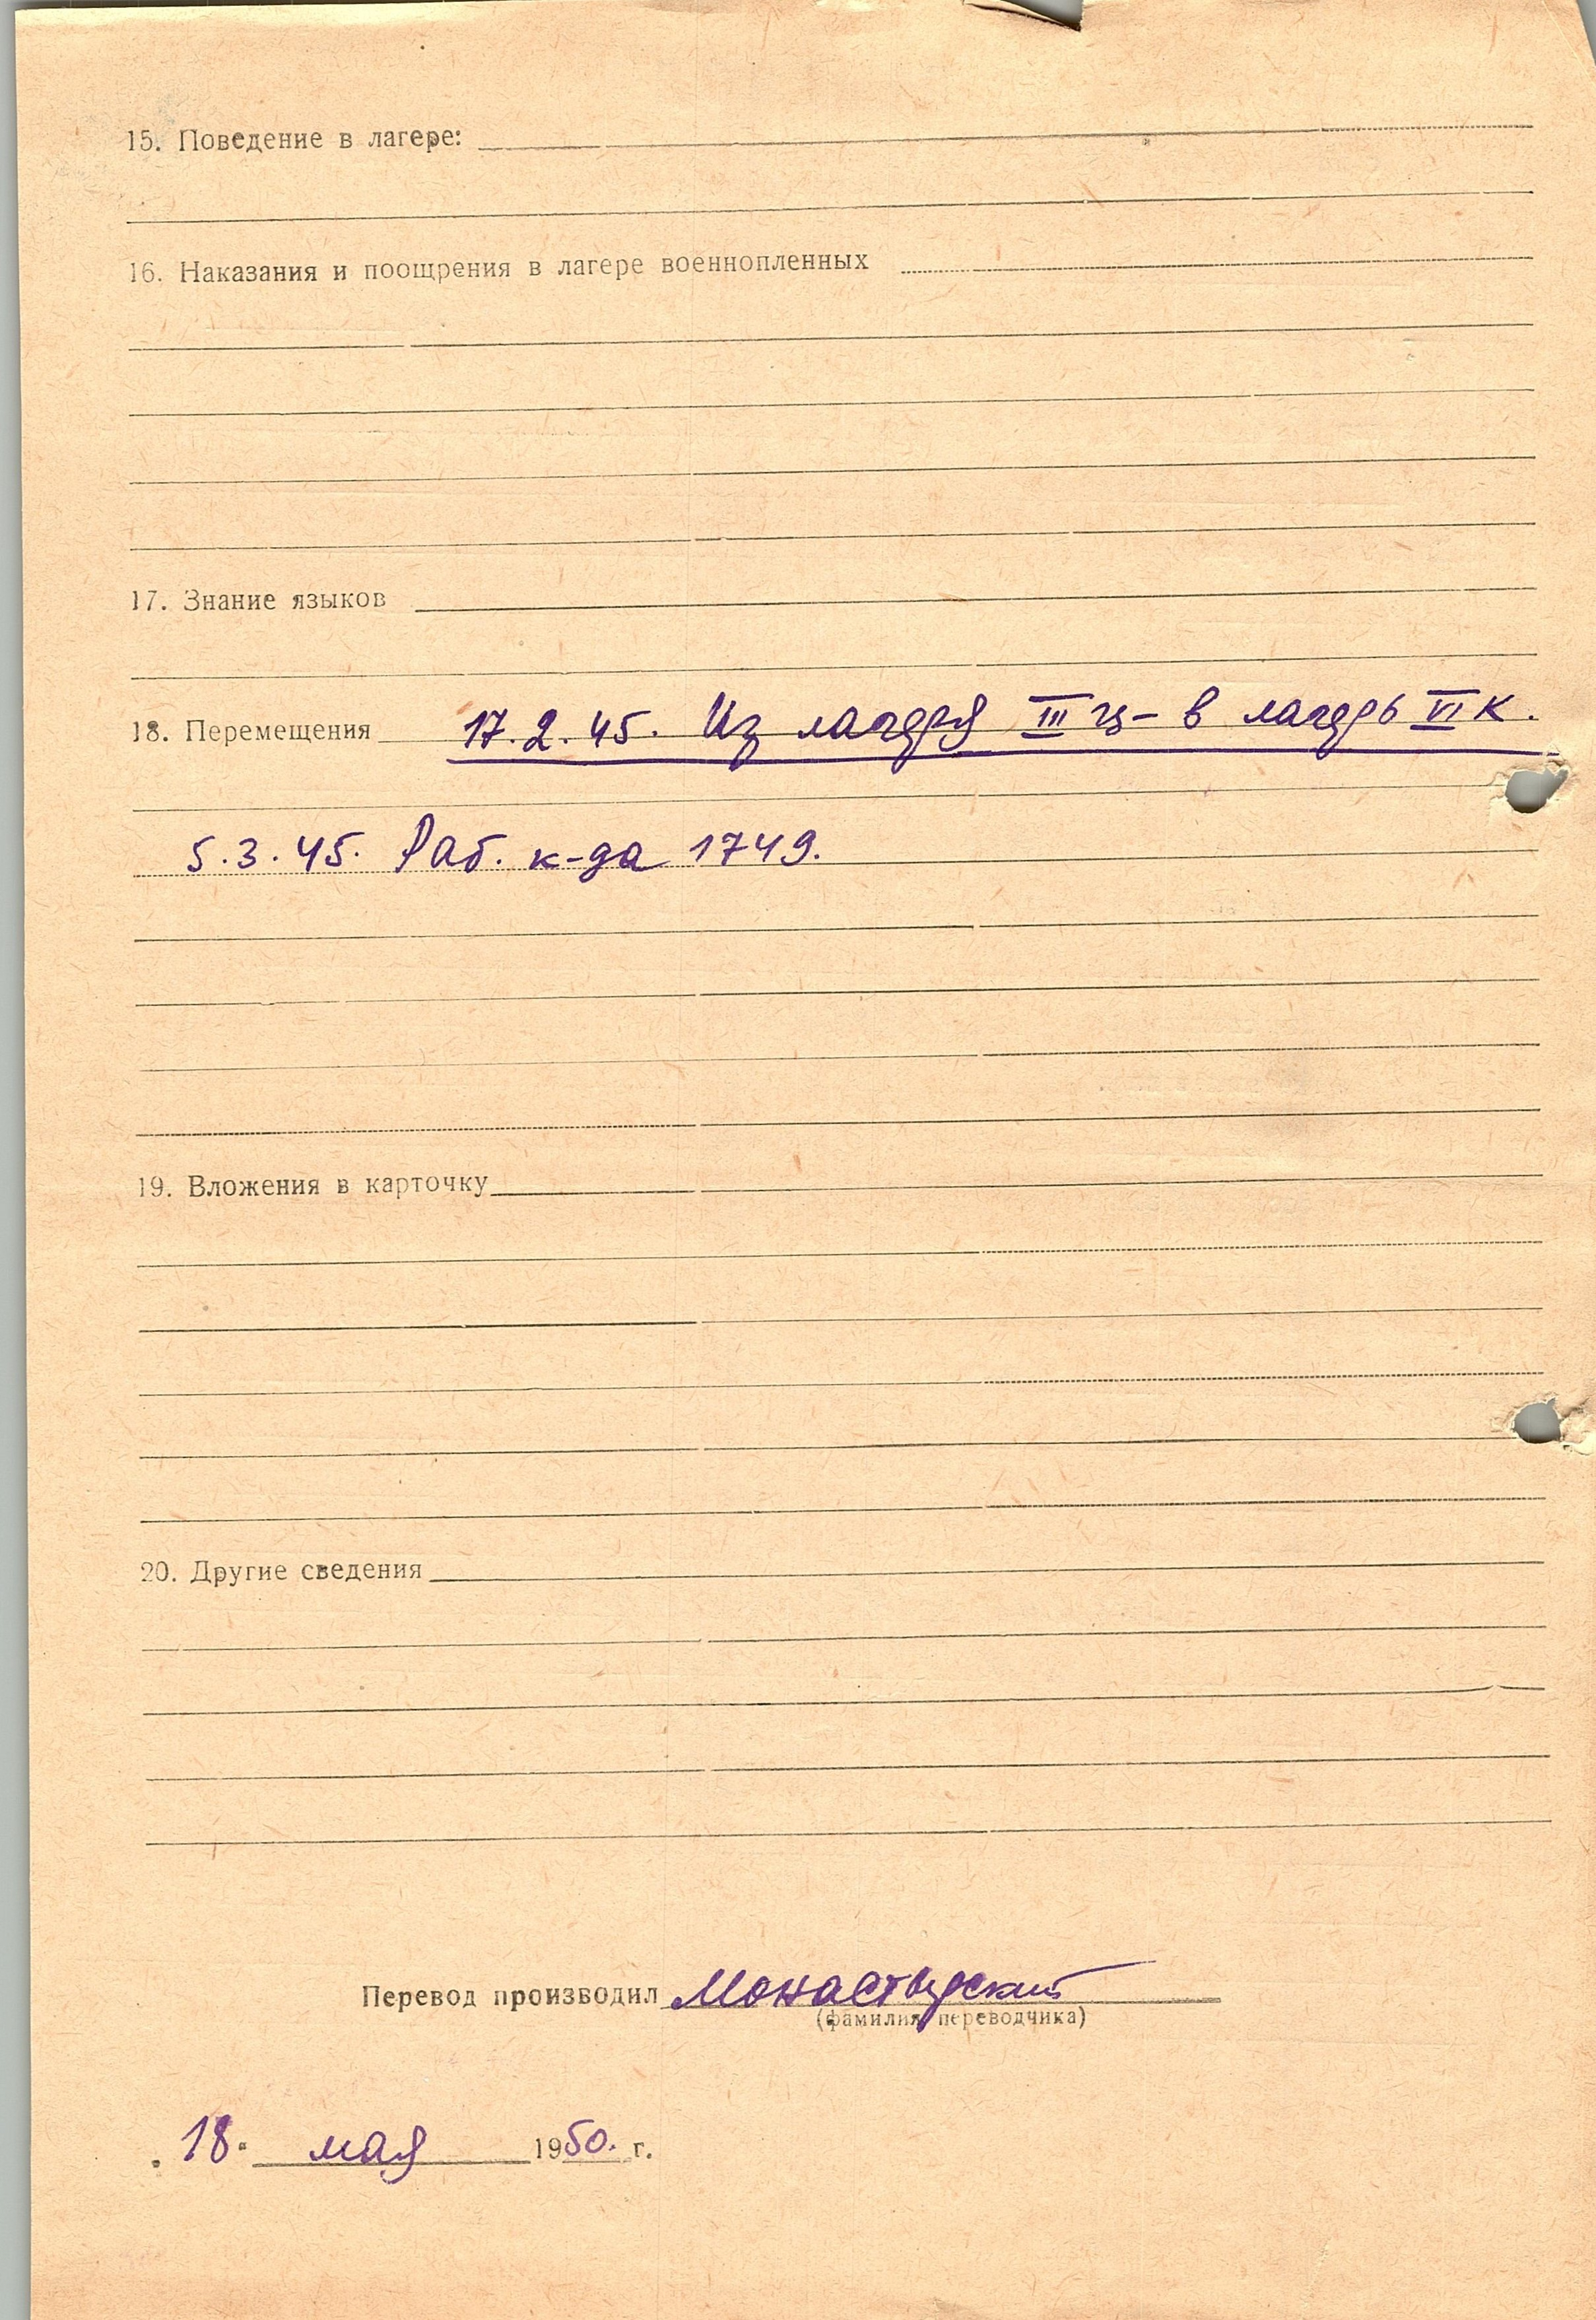 15. Поведение в лагере:
16. Наказания и поощрения в лагере военнопленных
17. Знание языков
18. Перемещения 17.2.45. Из лагеря III ц – в лагерь VI К.
5.3.45. Раб. к-да 1749.
19. Вложения в карточку
20. Другие сведения
Перевод производил Монастырский
(фамилия переводчика)
18. мая 1950. г.